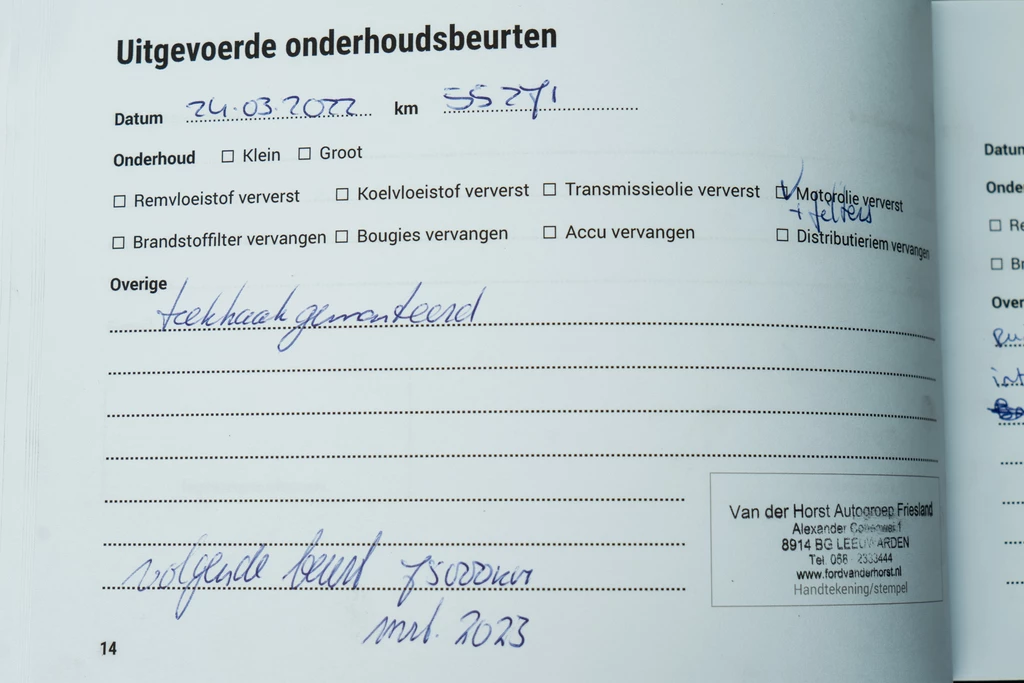 Uitgevoerde onderhoudsbeurten
Datum 24-03-2022 km 55271
Onderhoud ☐ Klein ☐ Groot
☐ Remvloeistof ververst ☐ Koelvloeistof ververst ☐ Transmissieolie ververst ☑ Motorolie ververst
+ filters
☐ Brandstoffilter vervangen ☐ Bougies vervangen ☐ Accu vervangen ☐ Distributieriem vervangen
Overige
trekhaak gemonteerd
volgende beurt 75000km
mrt. 2023
Van der Horst Autogroep Friesland
Alexander
8914 BG LEEUWARDEN
Tel. 058 - 2333444
www.fordvanderhorst.nl
Handtekening/stempel
14
Datum
Onde
☐ Re
☐ Br
Over